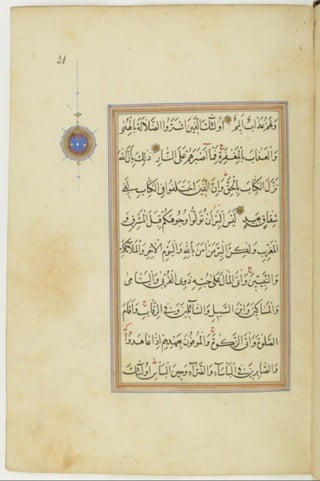 21
وَلَهُمْ عَذَابٌ اَلِيمٌ اُولٰئِكَ الَّذِينَ اشْتَرَوُا الضَّلَالَةَ بِالْهُدٰى
وَالْعَذَابَ بِالْمَغْفِرَةِ فَمَا اَصْبَرَهُمْ عَلَى النَّارِ ذٰلِكَ بِاَنَّ اللهَ
نَزَّلَ الْكِتَابَ بِالْحَقِّ وَاِنَّ الَّذِينَ اخْتَلَفُوا فِى الْكِتَابِ لَفِى
شِقَاقٍ بَعِيدٍ لَيْسَ الْبِرَّ اَنْ تُوَلُّوا وُجُوهَكُمْ قِبَلَ الْمَشْرِقِ وَ
الْمَغْرِبِ وَلٰكِنَّ الْبِرَّ مَنْ اٰمَنَ بِاللهِ وَالْيَوْمِ الْاٰخِرِ وَالْمَلٰئِكَةِ
وَالنَّبِيّينَ وَاٰتَى الْمَالَ عَلٰى حُبِّهِ ذَوِى الْقُرْبٰى وَالْيَتَامٰى
وَالْمَسَاكِينَ وَابْنَ السَّبِيلِ وَالسَّائِلِينَ وَفِى الرِّقَابِ وَاَقَامَ
الصَّلٰوةَ وَاٰتَى الزَّكٰوةَ وَالْمُوفُونَ بِعَهْدِهِمْ اِذَا عَاهَدُوا
وَالصَّابِرِينَ فِى الْبَاْسَاءِ وَالضَّرَّاءِ وَحِينَ الْبَاْسِ اُولٰئِكَ